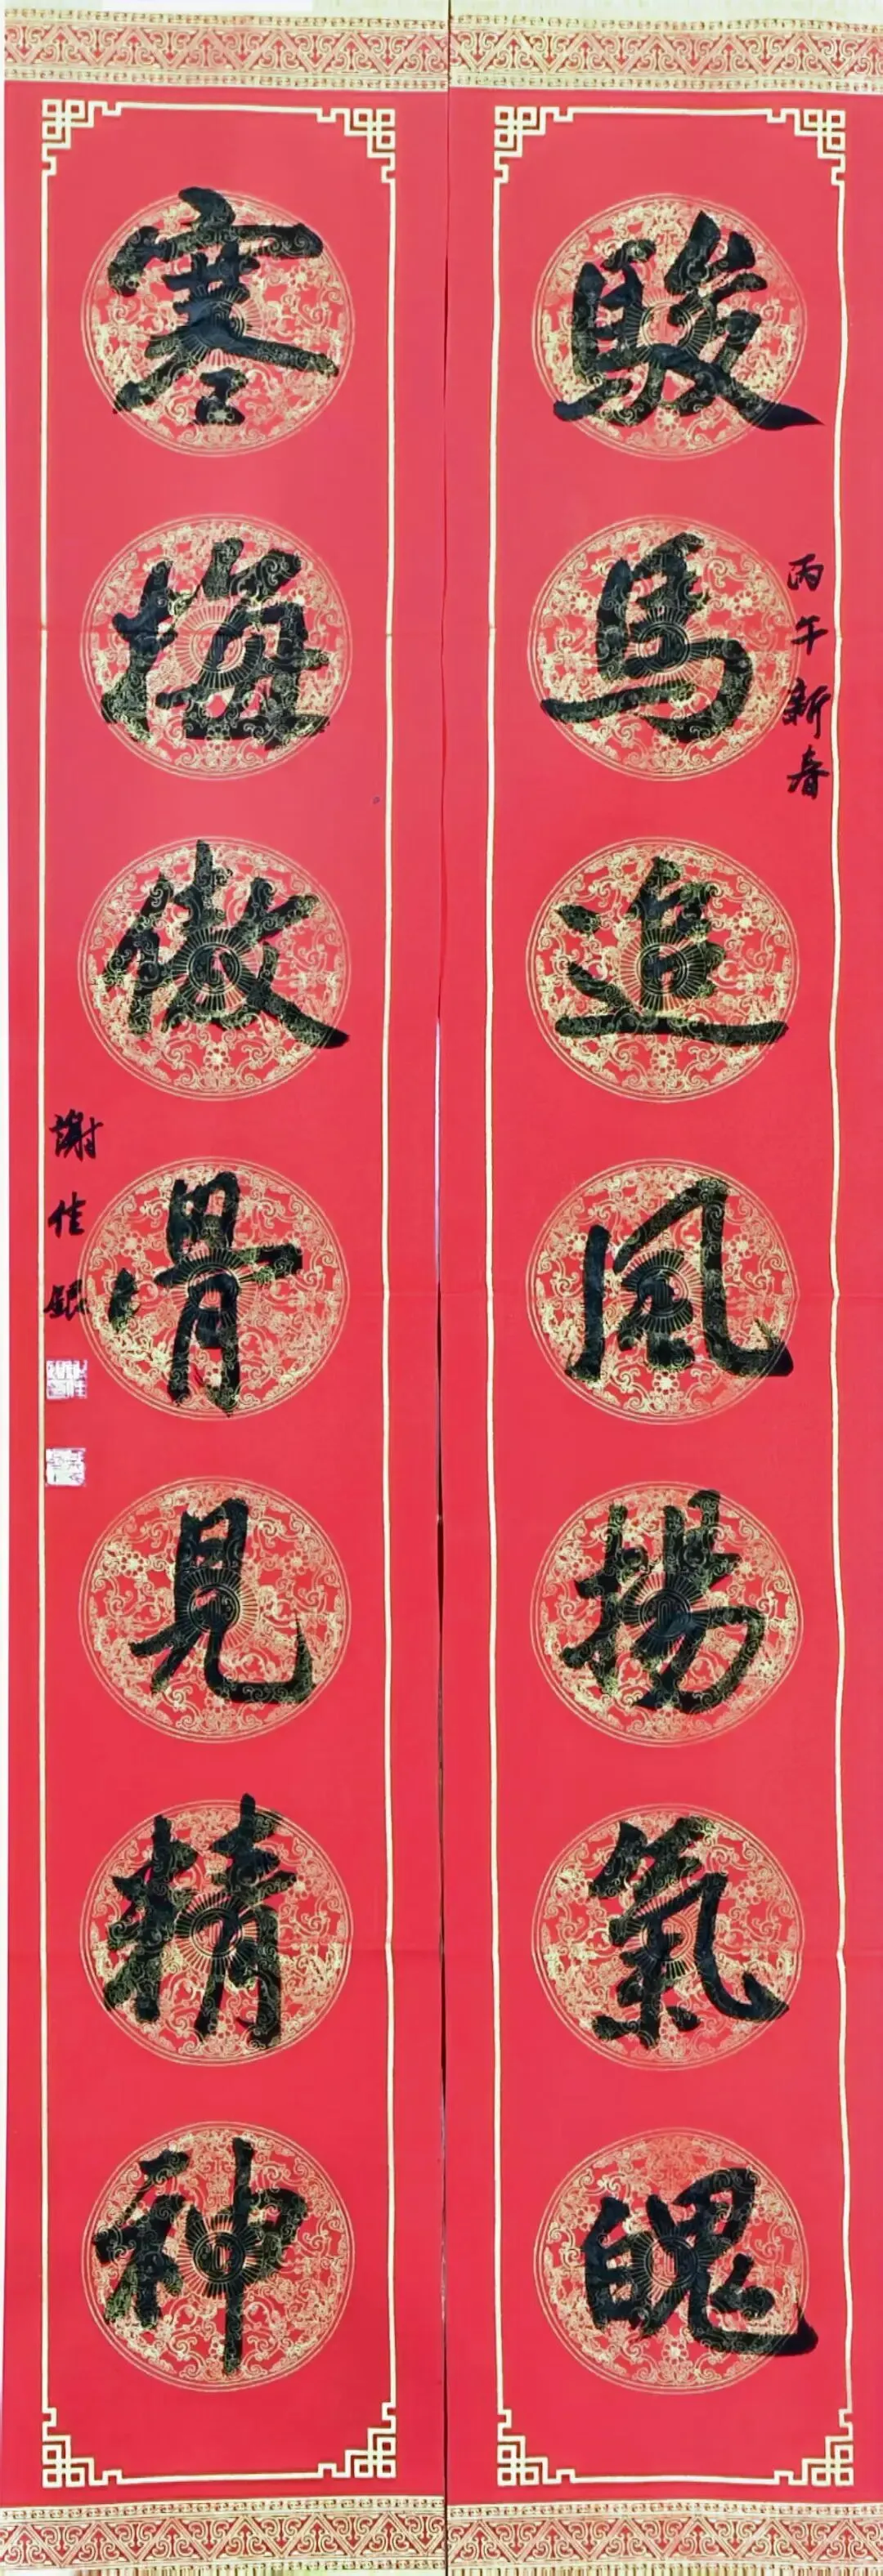 駿馬追風揚氣魄
丙午新春
寒梅傲骨見精神
謝佳銀